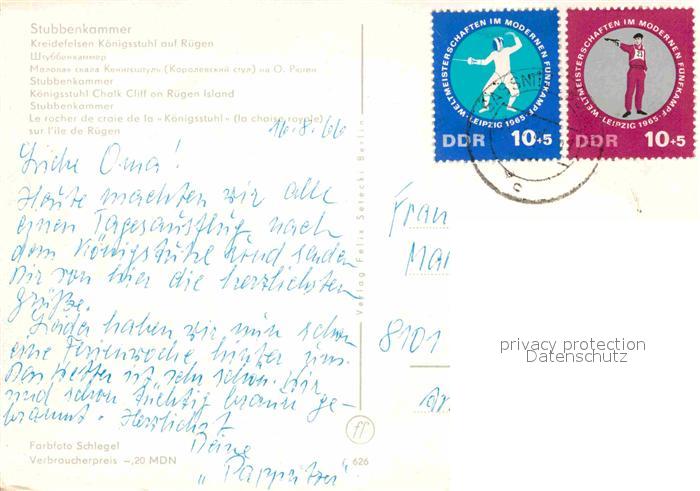 Stubbenkammer
Kreidefelsen Königsstuhl auf Rügen
Штуббенкаммер
Меловая скала Кенигсштуль (Королевский стул) на О. Рюген
Stubbenkammer
Königsstuhl Chalk Cliff on Rügen Island
Stubbenkammer
Le rocher de craie de la «Königsstuhl» (la chaise royale)
sur l'ile de Rügen
16.8.66
Liebe Oma!
Heute machten wir alle
einen Tagesausflug nach
dem Königsstuhl und senden
Dir von hier die herzlichsten
Grüße.
Leider haben wir nun schon
eine Ferienwoche hinter uns.
Das Wetter ist sehr schön. Wir
sind schon tüchtig braun ge-
brannt. Herzlichst
Deine
Farbfoto Schlegel
Verbraucherpreis -,20 MDN
626
Verlag Felix Setecki Berlin
WELTMEISTERSCHAFTEN IM MODERNEN FÜNFKAMPF · LEIPZIG 1965 ·
DDR 10+5
WELTMEISTERSCHAFTEN IM MODERNEN FÜNFKAMPF · LEIPZIG 1965 ·
DDR 10+5
8101
privacy protection
Datenschutz